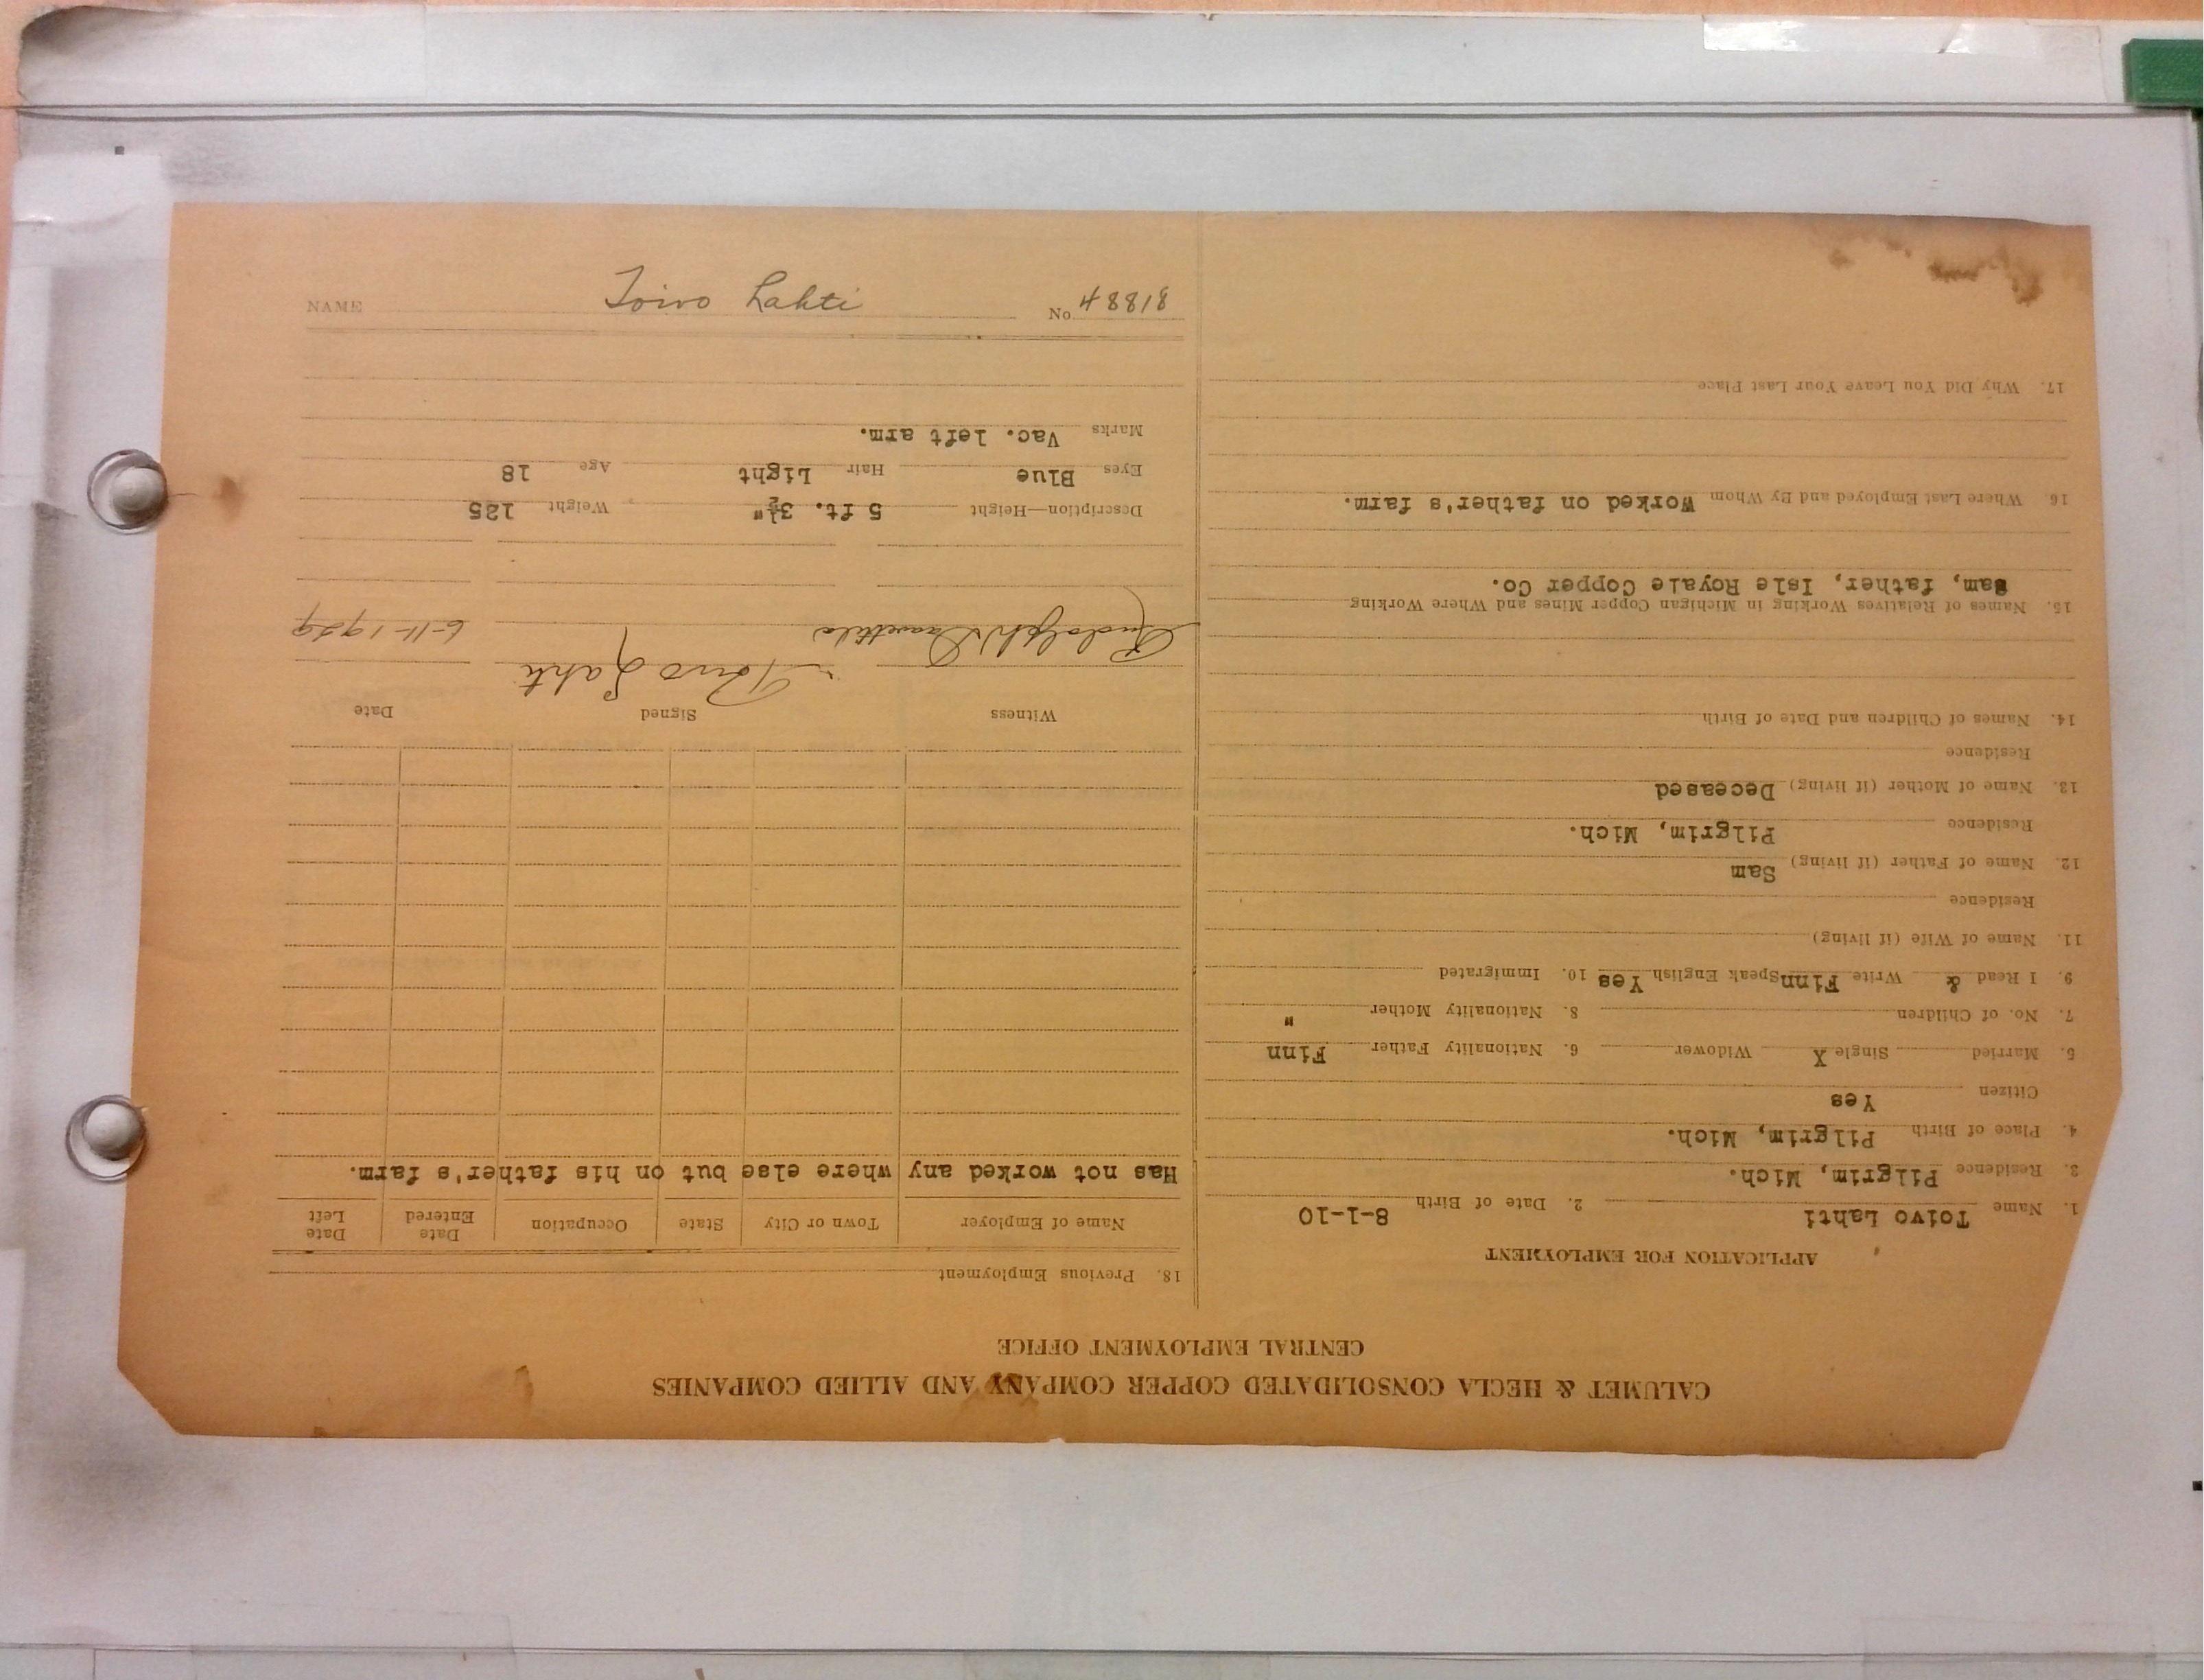 CALUMET & HECLA CONSOLIDATED COPPER COMPANY AND ALLIED COMPANIES
CENTRAL EMPLOYMENT OFFICE
APPLICATION FOR EMPLOYMENT
1. Name Toivo Lahti 2. Date of Birth 8-1-10
3. Residence Pilgrim, Mich.
4. Place of Birth Pilgrim, Mich.
Citizen Yes
5. Married Single X Widower 6. Nationality Father Finn
7. No. of Children 8. Nationality Mother "
9. I Read & Write Finn Speak English Yes 10. Immigrated
11. Name of Wife (if living)
Residence
12. Name of Father (if living) Sam
Residence Pilgrim, Mich.
13. Name of Mother (if living) Deceased
Residence
14. Names of Children and Date of Birth
15. Names of Relatives Working in Michigan Copper Mines and Where Working
Sam, father, Isle Royale Copper Co.
16. Where Last Employed and By Whom Worked on father's farm.
17. Why Did You Leave Your Last Place
18. Previous Employment
Name of Employer Town or City State Occupation Date Entered Date Left
Has not worked any where else but on his father's farm.
Witness Signed Date
Rudolph Toivo Lahti 6-11-1929
Description—Height 5 ft. 3½" Weight 125
Eyes Blue Hair Light Age 18
Marks Vac. left arm.
NAME Toivo Lahti No. 48818